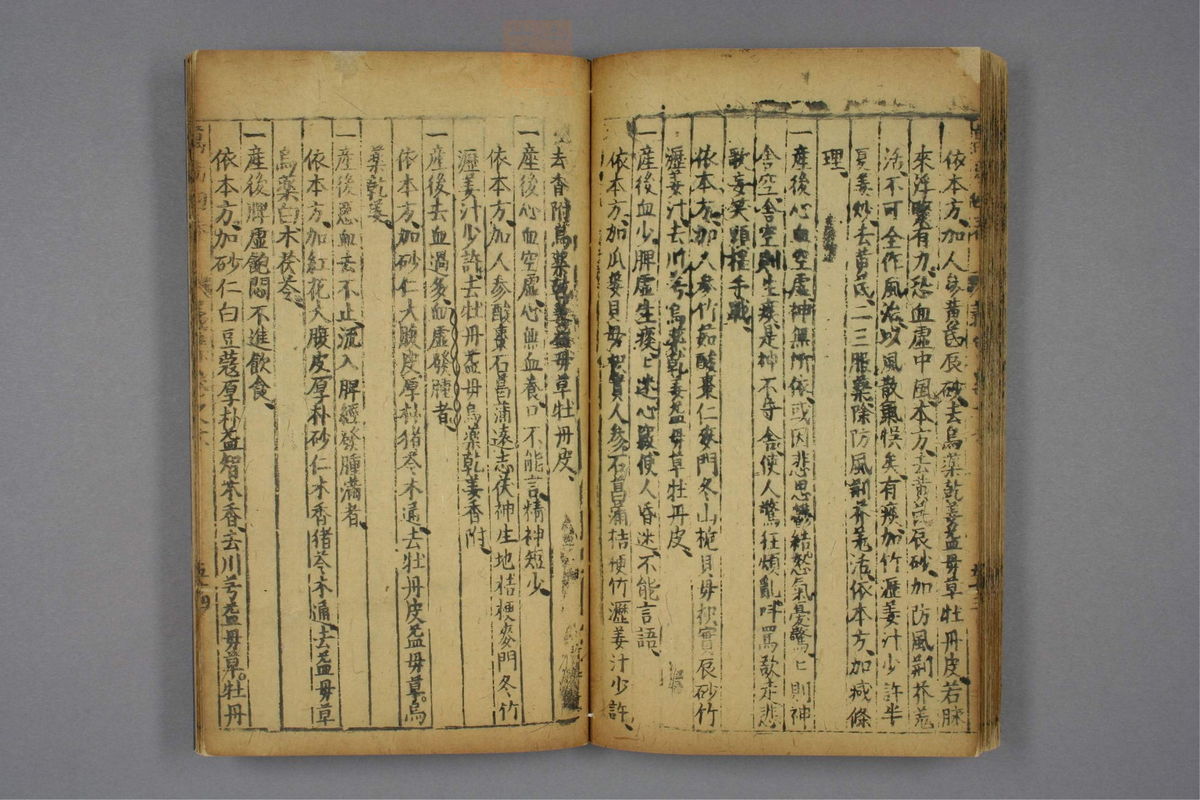 依本方、加人參黃芪辰砂、去烏藥乾姜益母草牡丹皮若脉
來浮緊有力、恐血虛中風、本方、去黃芪辰砂、加防風荊芥羌
活、不可全作風治、以風散氣候矣、有痰加竹瀝姜汁少許半
夏姜炒、去黃芪、二三服藥、除防風荊芥羌活、依本方、加减條
理、
一產後心血空虛、神無所依、或因悲思鬱結怒氣憂驚ヒ則神
舍空、舍空則生痰、是神不守舍、使人驚狂煩亂、呌罵欲走悲
歌妄笑、頭搖手戰、
依本方、加人參竹茹酸棗仁麥門冬山梔貝母枳實辰砂竹
瀝姜汁、去川芎烏藥乾姜益母草牡丹皮、
一產後血少、脾虛生痰、ヒ迷心竅、使人昏迷、不能言語、
依本方、加瓜蔞貝母枳實人參石菖蒲桔梗竹瀝姜汁少許、
去香附烏藥乾姜益母草牡丹皮、
一產後心血空虛、心無血養、口不能言、精神短少、
依本方、加人參酸棗石菖蒲遠志茯神生地桔梗麥門冬竹
瀝姜汁少許、去牡丹益母烏藥乾姜香附、
一產後去血過多、血虛發腫者、
依本方、加砂仁大腹皮厚朴猪苓木通、去牡丹皮益母草。烏
藥乾姜、
一產後惡血去不止、流入脾經、發腫滿者、
依本方、加紅花大腹皮厚朴砂仁木香猪苓木通、去益母草
烏藥白术茯苓、
一產後脾虛飽悶、不進飲食、
依本方、加砂仁白豆蔻厚朴益智木香、去川芎益母草。牡丹